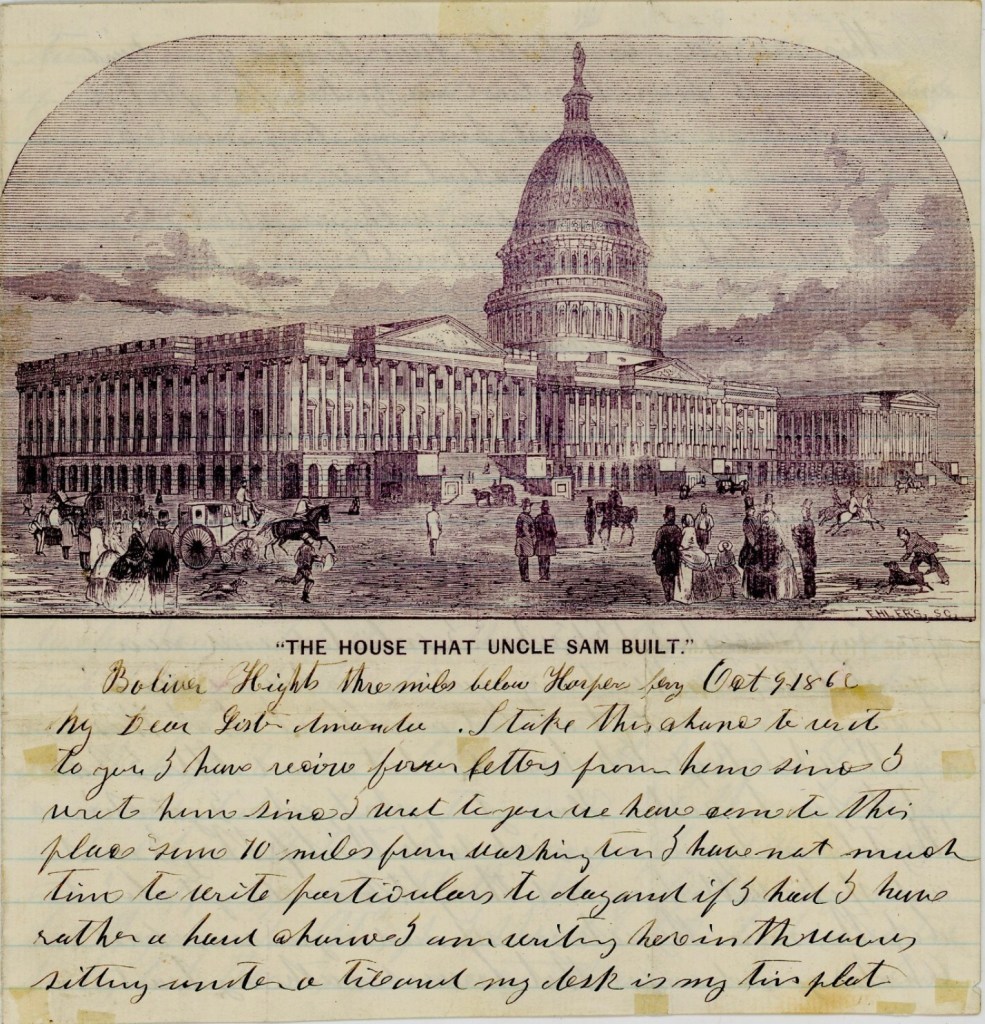 EHLERS, SC.
"THE HOUSE THAT UNCLE SAM BUILT."
Boliver Hights thre miles below Harpers fery Oct 9 186
My Dear Sister Amanda . I take this chance to writ
to you I have recive fower letters from home since I
writ home since I writ to you we have come to this
place some 70 miles from Washington I have not much
time to write particulars to day and if I had I have
rather a hard chance I am writing here in the
sitting under a tree and my desk is my tin plat